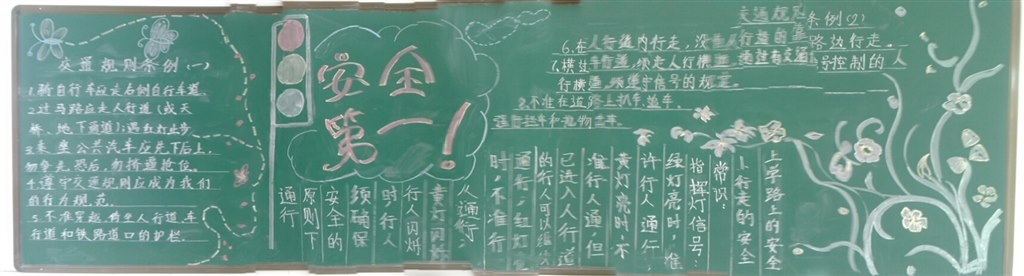 交通规则条例(一)
1.骑自行车应走右侧自行车道.
2.过马路应走人行道(或天
桥、地下通道);遇红灯止步.
3.乘坐公共汽车应先下后上,
勿争先恐后,勿拥挤抢位.
4.遵守交通规则应成为我们
的行为规范.
5.不准穿越、倚坐人行道、车
行道和铁路道口的护栏.
安全
第一!
交通规则条例(2)
6.在人行道内行走,没有人行道的靠路边行走。
7.横过车行道,须走人行横道,通过有交通信号控制的人
行横道,须遵守信号的规定。
8.不准在道路上扒车、追车、
强行拦车和抛物击车。
上学路上的安全
1.行走的安全
常识:
指挥灯信号:
绿灯亮时,准
许行人通行,
黄灯亮时不
准行人通但
已进入人行道
的行人可以继续
通行,红灯亮
时,不准行
人通行.
黄灯闪烁
行人闪烁
时行人
须确保
安全的
原则下
通行